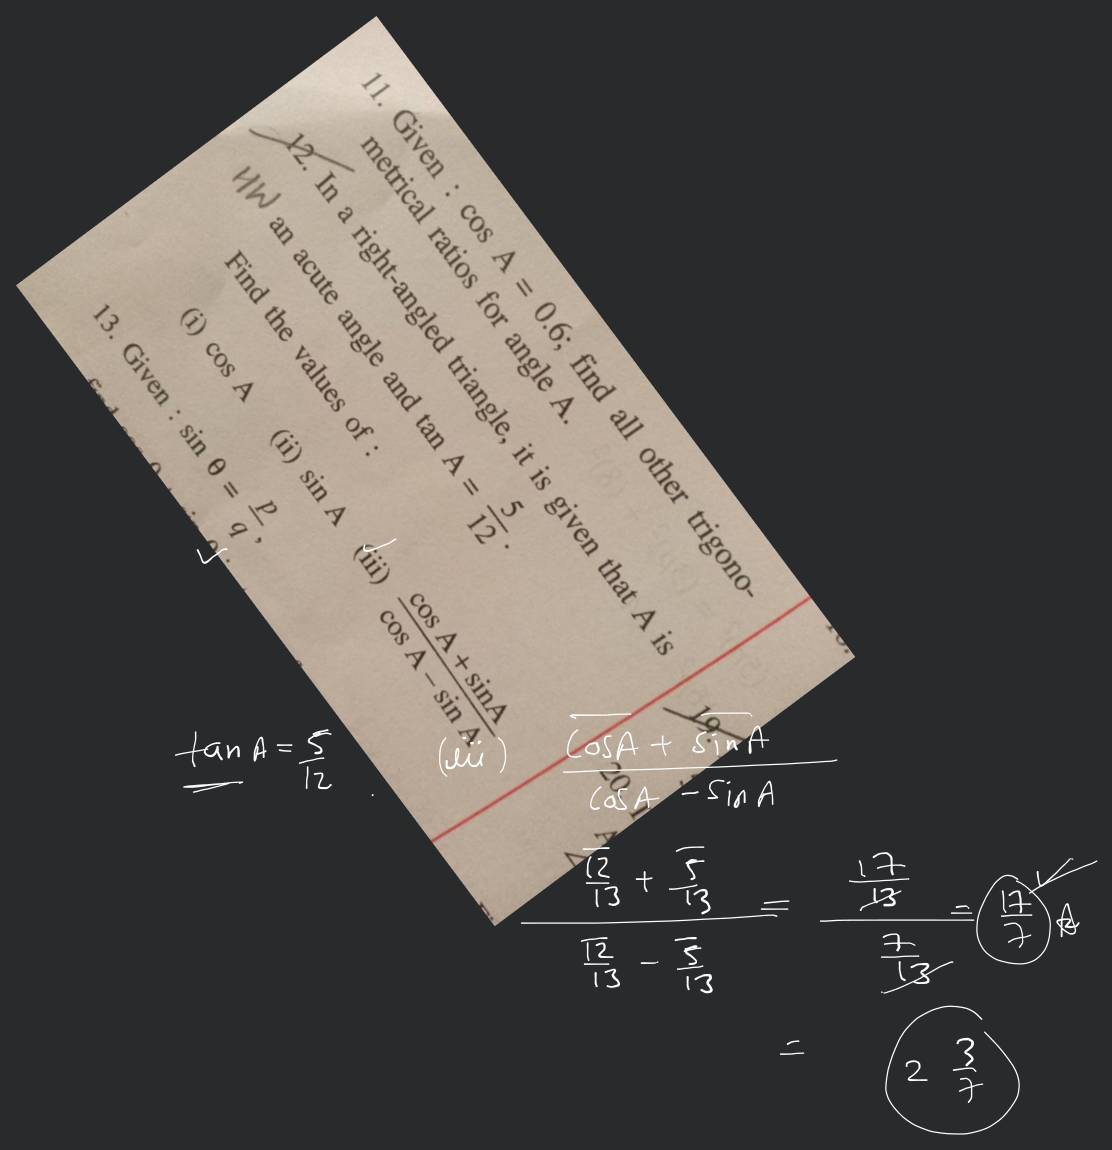 11. Given : cos A = 0.6; find all other trigono-
metrical ratios for angle A.
12. In a right-angled triangle, it is given that A is
HW an acute angle and tan A = 5/12.
Find the values of :
(i) cos A (ii) sin A (iii) cos A + sinA / cos A − sin A
13. Given : sin θ = p/q,
19.
20.
tan A = 5/12
(iii) cosA + sinA / cosA - sinA
12/13 + 5/13 / 12/13 - 5/13 = 17/13 / 7/13 = 17/7
= 2 3/7